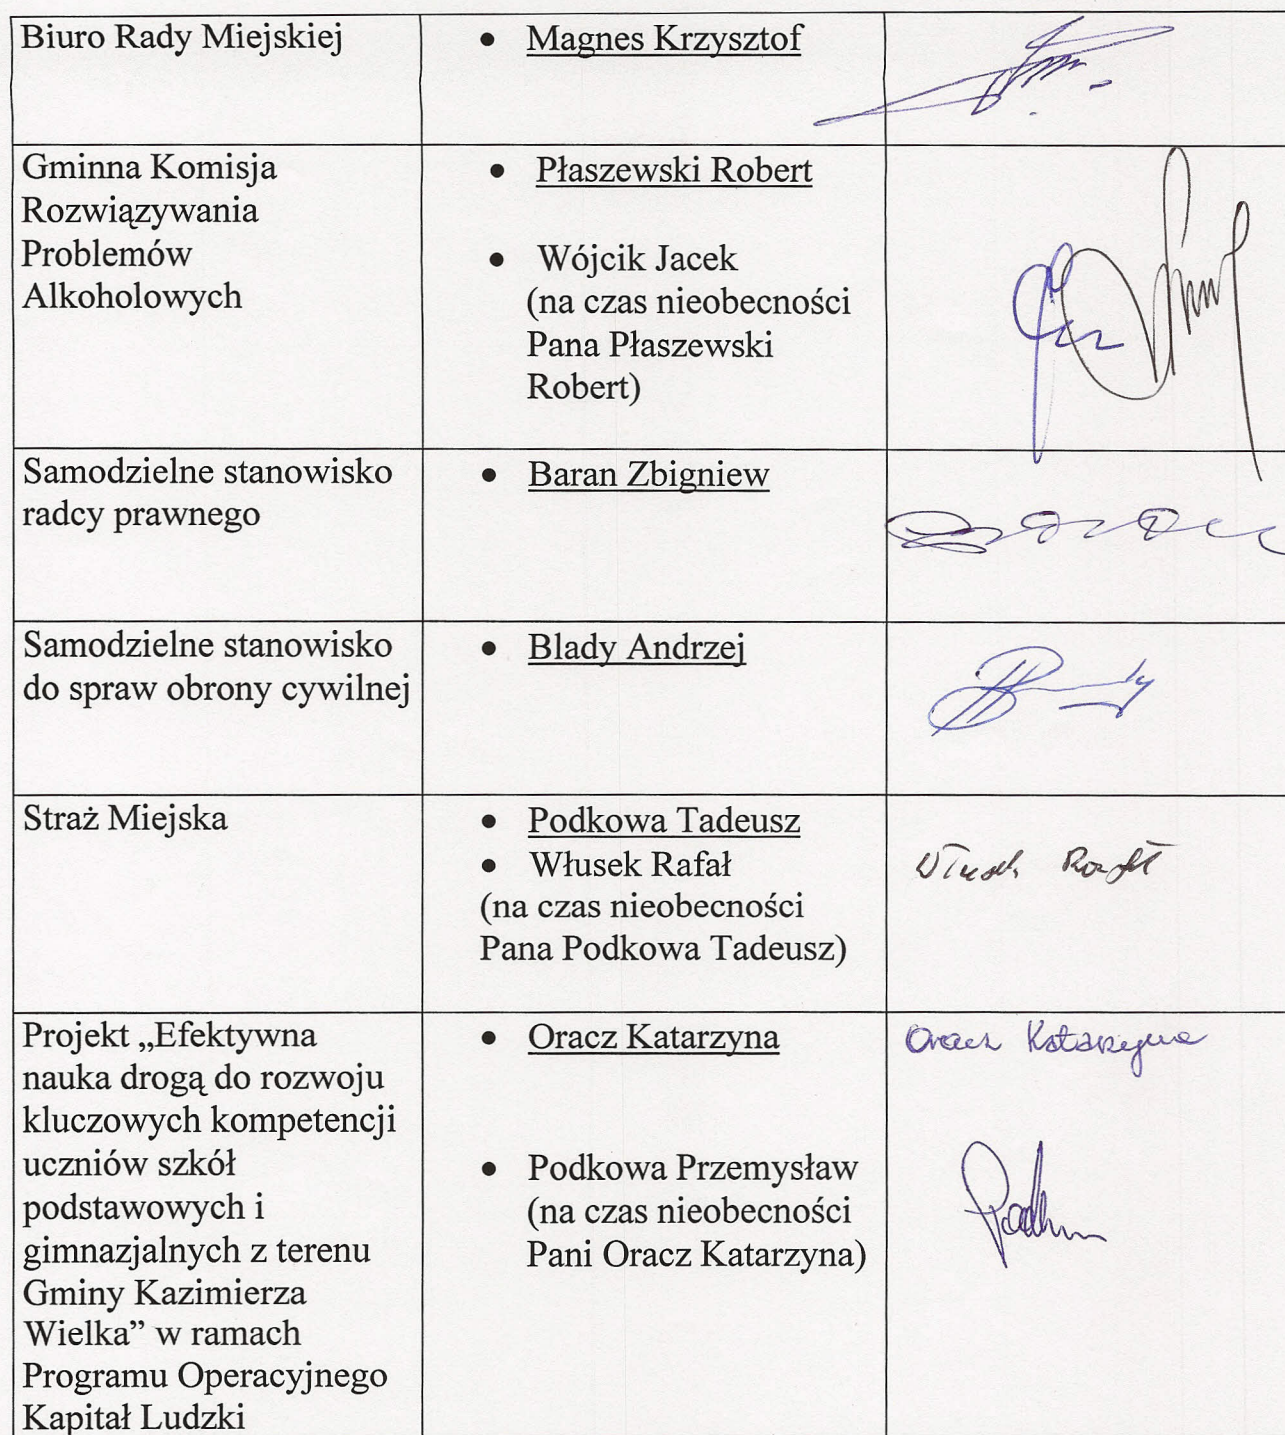 Biuro Rady Miejskiej
• Magnes Krzysztof
Gminna Komisja
Rozwiązywania
Problemów
Alkoholowych
• Płaszewski Robert
• Wójcik Jacek
(na czas nieobecności
Pana Płaszewski
Robert)
Samodzielne stanowisko
radcy prawnego
• Baran Zbigniew
Samodzielne stanowisko
do spraw obrony cywilnej
• Blady Andrzej
Straż Miejska
• Podkowa Tadeusz
• Włusek Rafał
(na czas nieobecności
Pana Podkowa Tadeusz)
Włusek Rafał
Projekt „Efektywna
nauka drogą do rozwoju
kluczowych kompetencji
uczniów szkół
podstawowych i
gimnazjalnych z terenu
Gminy Kazimierza
Wielka” w ramach
Programu Operacyjnego
Kapitał Ludzki
• Oracz Katarzyna
• Podkowa Przemysław
(na czas nieobecności
Pani Oracz Katarzyna)
Oracz Katarzyna